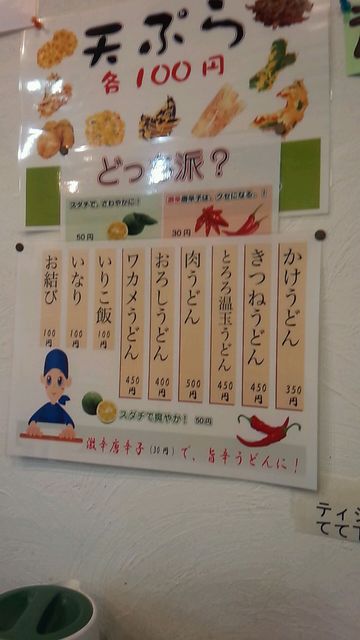 天ぷら
各100円
どっち派？
スダチで、さわやかに！
50円
激辛唐辛子は、クセになる。！
30円
かけうどん 350円
きつねうどん 450円
とろろ温玉うどん 450円
肉うどん 500円
おろしうどん 400円
ワカメうどん 450円
いりこ飯 100円
いなり 100円
お結び 100円
スダチで爽やか！ 50円
激辛唐辛子(30円)で、旨辛うどんに！
ティ
てて